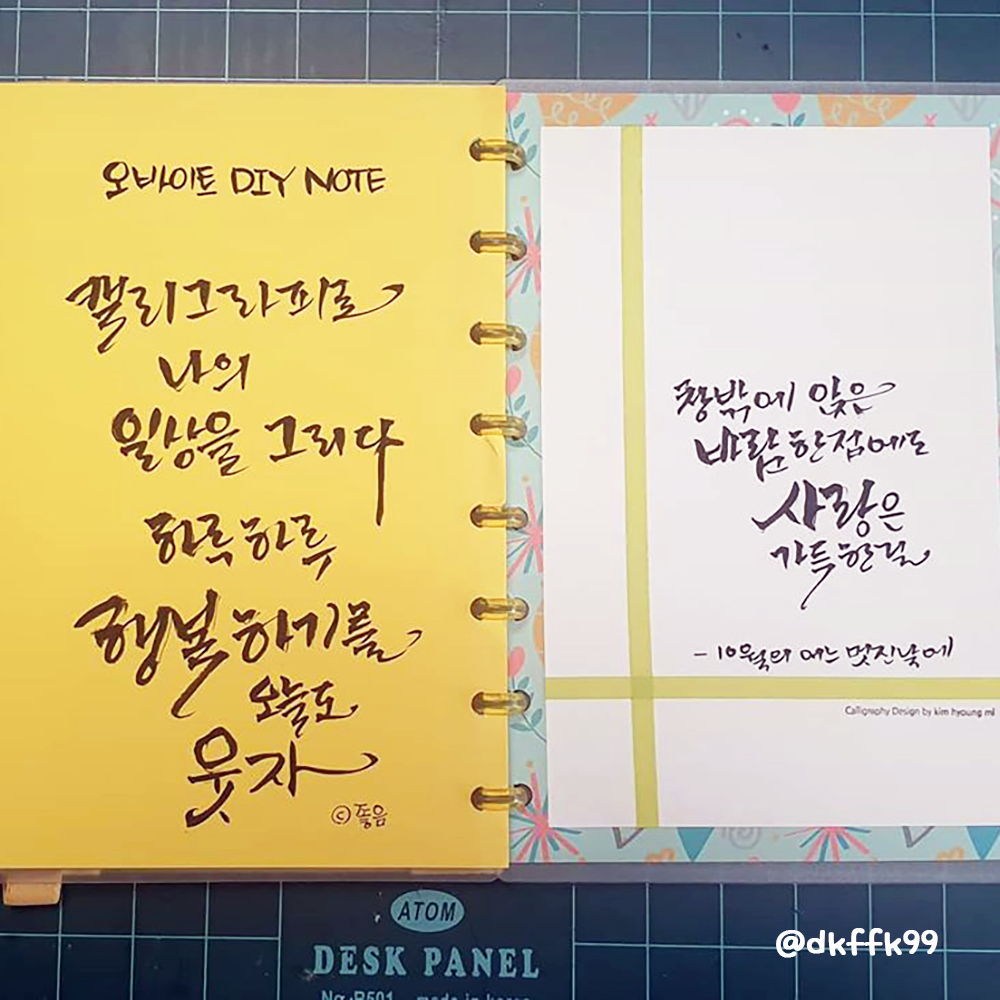 오바이트 DIY NOTE
캘리그라피로
나의
일상을 그리다
하루하루
행복하기를
오늘도
웃자
ⓒ좋음
창밖에 앉은
바람한점에도
사랑은
가득한걸
- 10월의 어느 멋진날에
Calligraphy Design by kim hyoung mi
ATOM
DESK PANEL
No:R501 made in korea
@dkffk99